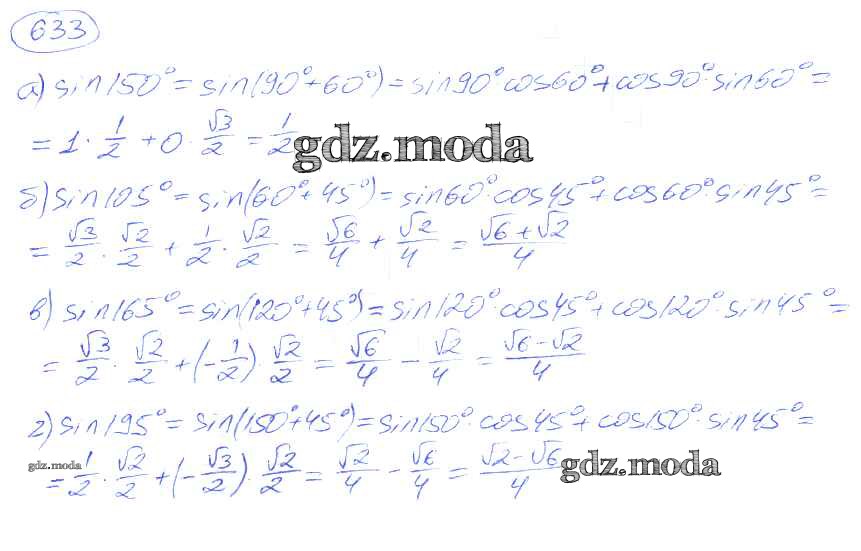 633
а) sin150° = sin(90°+60°) = sin90° cos60° + cos90° · sin60° =
= 1 · 1/2 + 0 · √3/2 = 1/2
gdz.moda
б) sin105° = sin(60°+45°) = sin60° · cos45° + cos60° · sin45° =
= √3/2 · √2/2 + 1/2 · √2/2 = √6/4 + √2/4 = (√6+√2)/4
в) sin165° = sin(120°+45°) = sin120° · cos45° + cos120° · sin45° =
= √3/2 · √2/2 + (-1/2) · √2/2 = √6/4 - √2/4 = (√6-√2)/4
г) sin195° = sin(150°+45°) = sin150° · cos45° + cos150° · sin45° =
gdz.moda
= 1/2 · √2/2 + (-√3/2) · √2/2 = √2/4 - √6/4 = (√2-√6)/4
gdz.moda